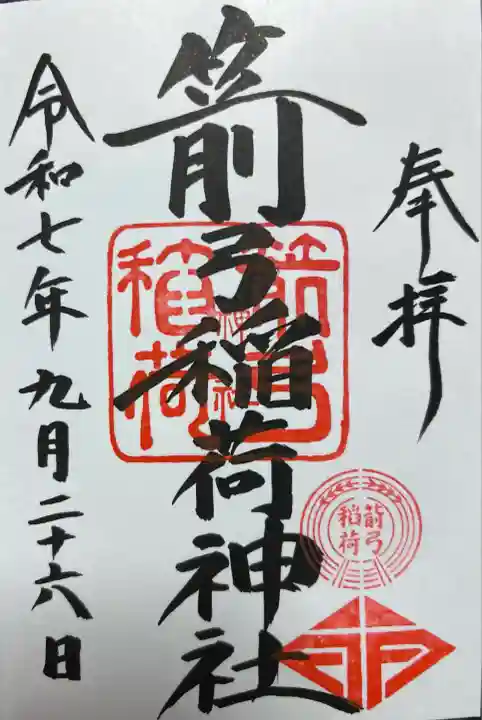 奉拝
箭弓稲荷神社
令和七年九月二十六日
箭弓
稲荷
神社
箭弓
稲荷